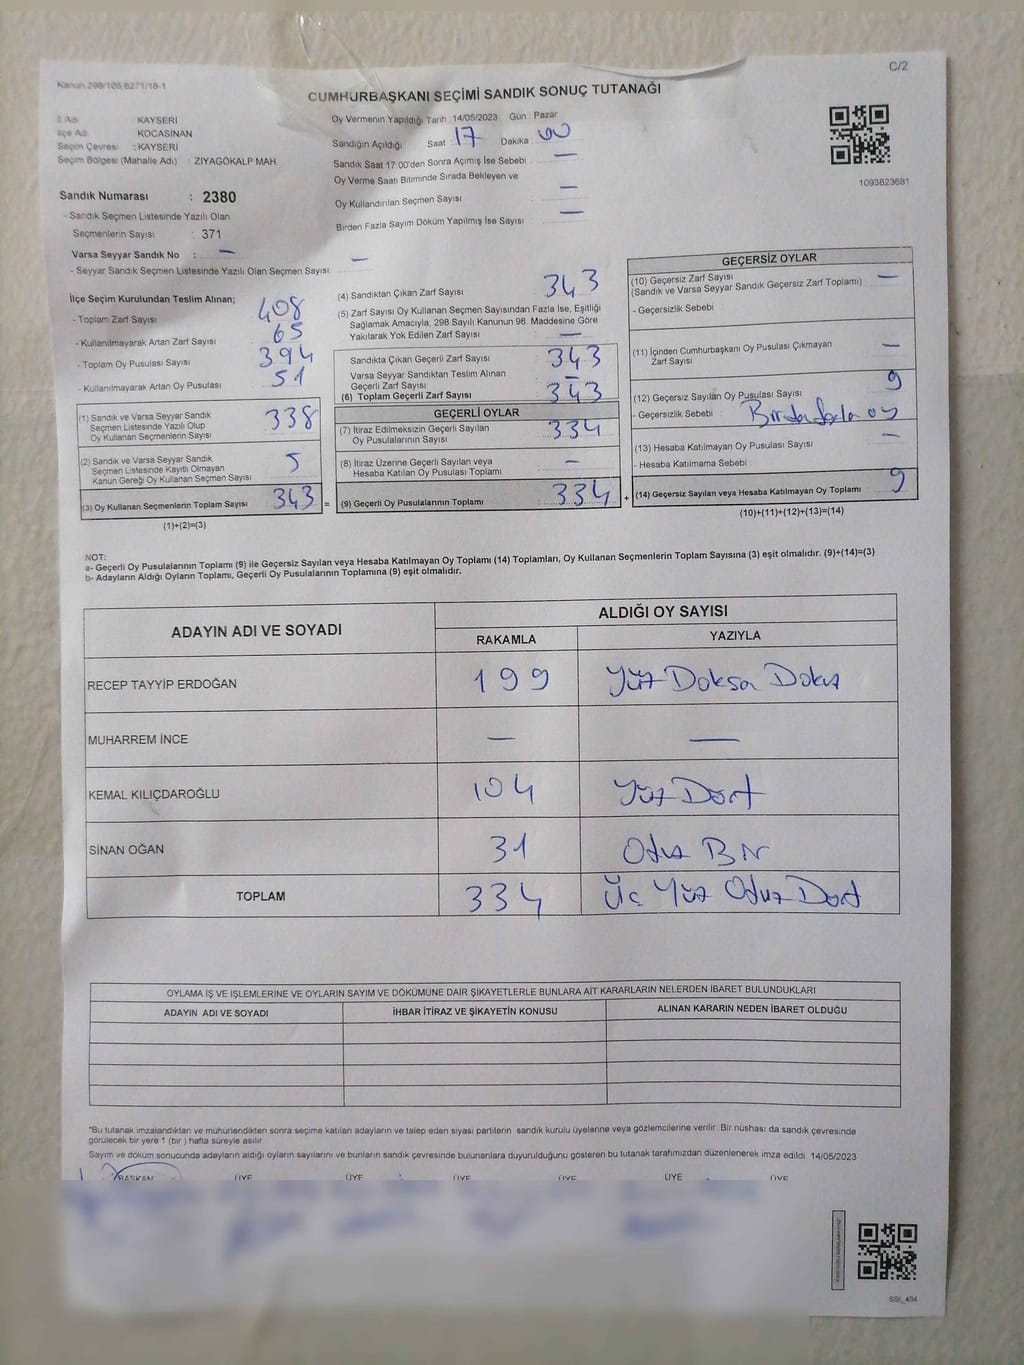 C/2
Kanun 298/105,6271/16-1
CUMHURBAŞKANI SEÇİMİ SANDIK SONUÇ TUTANAĞI
İl Adı KAYSERİ
İlçe Adı KOCASİNAN
Seçim Çevresi : KAYSERİ
Seçim Bölgesi (Mahalle Adı) : ZİYAGÖKALP MAH.
Oy Vermenin Yapıldığı Tarih : 14/05/2023 Gün Pazar
Sandığın Açıldığı Saat : 17 Dakika : 00
Sandık Saat 17:00'den Sonra Açımış İse Sebebi : —
Oy Verme Saati Bitiminde Sırada Bekleyen ve
Oy Kullandırılan Seçmen Sayısı : —
Birden Fazla Sayım Döküm Yapılmış İse Sayısı : —
1093823681
Sandık Numarası : 2380
- Sandık Seçmen Listesinde Yazılı Olan
Seçmenlerin Sayısı : 371
Varsa Seyyar Sandık No : —
- Seyyar Sandık Seçmen Listesinde Yazılı Olan Seçmen Sayısı : —
İlçe Seçim Kurulundan Teslim Alınan;
- Toplam Zarf Sayısı 408
- Kullanılmayarak Artan Zarf Sayısı 65
- Toplam Oy Pusulası Sayısı 394
- Kullanılmayarak Artan Oy Pusulası 51
(1) Sandık ve Varsa Seyyar Sandık
Seçmen Listesinde Yazılı Olup
Oy Kullanan Seçmenlerin Sayısı 338
(2) Sandık ve Varsa Seyyar Sandık
Seçmen Listesinde Kayıtlı Olmayan
Kanun Gereği Oy Kullanan Seçmen Sayısı 5
(3) Oy Kullanan Seçmenlerin Toplam Sayısı 343 =
(1)+(2)=(3)
(4) Sandıktan Çıkan Zarf Sayısı 343
(5) Zarf Sayısı Oy Kullanan Seçmen Sayısından Fazla İse, Eşitliği
Sağlamak Amacıyla; 298 Sayılı Kanunun 98. Maddesine Göre
Yakılarak Yok Edilen Zarf Sayısı —
Sandıkta Çıkan Geçerli Zarf Sayısı 343
Varsa Seyyar Sandıktan Teslim Alınan
Geçerli Zarf Sayısı —
(6) Toplam Geçerli Zarf Sayısı 343
GEÇERLİ OYLAR
(7) İtiraz Edilmeksizin Geçerli Sayılan
Oy Pusulasının Sayısı 334
(8) İtiraz Üzerine Geçerli Sayılan veya
Hesaba Katılan Oy Pusulası Toplamı —
(9) Geçerli Oy Pusulalarının Toplamı 334 +
GEÇERSİZ OYLAR
(10) Geçersiz Zarf Sayısı
(Sandık ve Varsa Seyyar Sandık Geçersiz Zarf Toplamı) —
- Geçersizlik Sebebi :
(11) İçinden Cumhurbaşkanı Oy Pusulası Çıkmayan
Zarf Sayısı —
(12) Geçersiz Sayılan Oy Pusulası Sayısı 9
- Geçersizlik Sebebi : Birden fazla oy
(13) Hesaba Katılmayan Oy Pusulası Sayısı —
- Hesaba Katılmama Sebebi :
(14) Geçersiz Sayılan veya Hesaba Katılmayan Oy Toplamı 9
(10)+(11)+(12)+(13)=(14)
NOT:
a- Geçerli Oy Pusulalarının Toplamı (9) ile Geçersiz Sayılan veya Hesaba Katılmayan Oy Toplamı (14) Toplamları, Oy Kullanan Seçmenlerin Toplam Sayısına (3) eşit olmalıdır. (9)+(14)=(3)
b- Adayların Aldığı Oyların Toplamı, Geçerli Oy Pusulalarının Toplamına (9) eşit olmalıdır.
ADAYIN ADI VE SOYADI ALDIĞI OY SAYISI
RAKAMLA YAZIYLA
RECEP TAYYİP ERDOĞAN 199 Yüz Doksa Dokuz
MUHARREM İNCE — —
KEMAL KILIÇDAROĞLU 104 Yüz Dört
SİNAN OĞAN 31 Otuz Bir
TOPLAM 334 Üç Yüz Otuz Dört
OYLAMA İŞ VE İŞLEMLERİNE VE OYLARIN SAYIM VE DÖKÜMÜNE DAİR ŞİKAYETLERLE BUNLARA AİT KARARLARIN NELERDEN İBARET BULUNDUKLARI
ADAYIN ADI VE SOYADI İHBAR İTİRAZ VE ŞİKAYETİN KONUSU ALINAN KARARIN NEDEN İBARET OLDUĞU
*Bu tutanak imzalandıktan ve mühürlendikten sonra seçime katılan adayların ve talep eden siyasi partilerin sandık kurulu üyelerine veya gözlemcilerine verilir. Bir nüshası da sandık çevresinde
görülecek bir yere 1 (bir) hafta süreyle asılır.
Sayım ve döküm sonucunda adayların aldığı oyların sayılarını ve bunların sandık çevresinde bulunanlara duyurulduğunu gösteren bu tutanak tarafımızdan düzenlenerek imza edildi. 14/05/2023
BAŞKAN ÜYE ÜYE ÜYE ÜYE ÜYE ÜYE
SSI_494